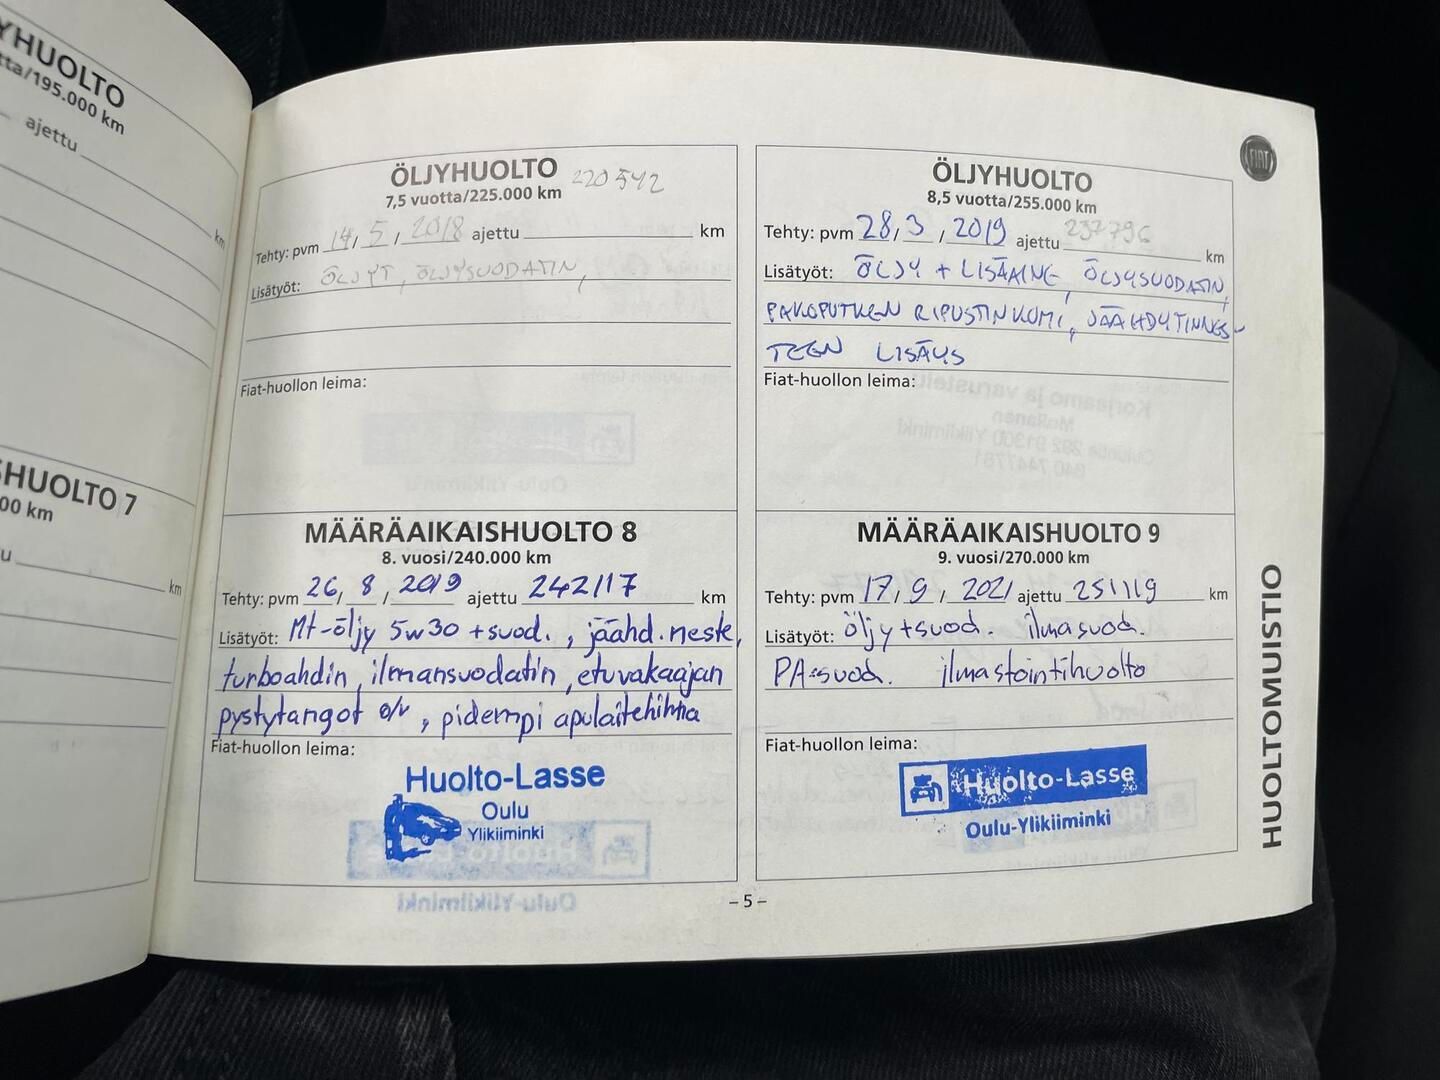 YHUOLTO
tta/195.000 km
ajettu
km
SHUOLTO 7
00 km
u
km
ÖLJYHUOLTO 220542
7,5 vuotta/225.000 km
Tehty: pvm 14, 5, 2018 ajettu km
Lisätyöt: ÖLJYT, ÖLJYSUODATIN,
Fiat-huollon leima:
ÖLJYHUOLTO
8,5 vuotta/255.000 km
Tehty: pvm 28, 3, 2019 ajettu 237796 km
Lisätyöt: ÖLJY + LISÄAINE, ÖLJYSUODATIN,
PAKOPUTKEN RIPUSTINKUMI, JÄÄHDYTINNES-
TEEN LISÄYS
Fiat-huollon leima:
MÄÄRÄAIKAISHUOLTO 8
8. vuosi/240.000 km
Tehty: pvm 26, 8, 2019 ajettu 242117 km
Lisätyöt: Mt-öljy 5w30 +suod., jäähd.neste,
turboahdin, ilmansuodatin, etuvakaajan
pystytangot o/v, pidempi apulaitehihna
Fiat-huollon leima:
Huolto-Lasse
Oulu
Ylikiiminki
MÄÄRÄAIKAISHUOLTO 9
9. vuosi/270.000 km
Tehty: pvm 17, 9, 2021 ajettu 251119 km
Lisätyöt: öljy+suod. ilmasuod.
PA-suod. ilmastointihuolto
Fiat-huollon leima:
Huolto-Lasse
Oulu-Ylikiiminki
– 5 –
FIAT
HUOLTOMUISTIO